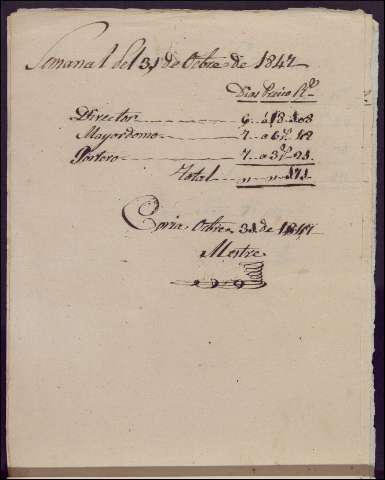 Semanal del 31 de Octbre de 1847
Dias Precio Rs
Director 6 a 18 108
Mayordomo 7 a 6rs 42
Portero 7 a 3rs 21
Total " " 171
Coria Octbre 31 de 1847
Mestre